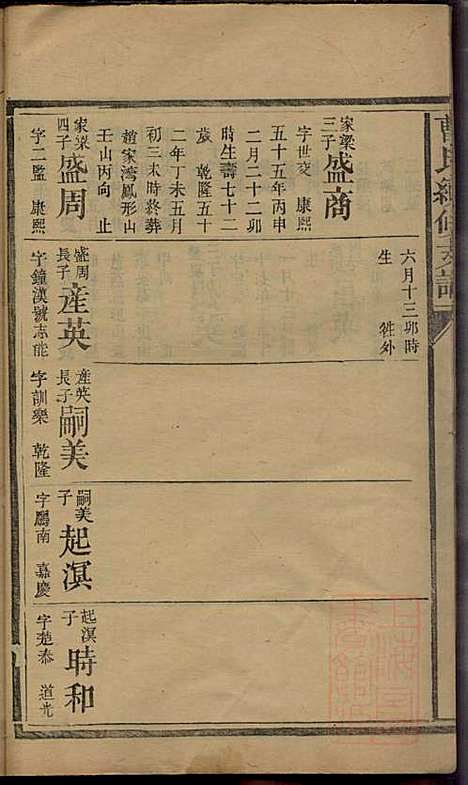 曹氏續修支譜
六月十三卯時
生　　　往外
家梁三子盛商
字世交　康熙
五十五年丙申
二月二十二卯
時生壽七十二
歲　乾隆五十
二年丁未五月
初三未時終葬
趙家湾鳳形山
壬山丙向　止
家梁四子盛周
字二監　康熙
盛周長子産英
字鐘漢號志能
産英長子嗣美
字訓樂　乾隆
嗣美子起溟
字鵬南　嘉慶
起溟子時和
字楚泰　道光